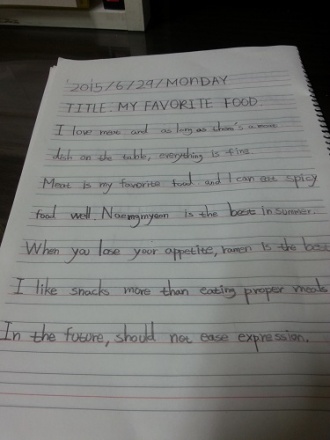 2015/6/29/MONDAY
TITLE: MY FAVORITE FOOD
I love meat and as long as there's a meat
dish on the table, everything is fine.
Meat is my favorite food and I can eat spicy
food well. Naengmyeon is the best in summer.
When you lose your appetite, ramen is the best
I like snacks more than eating proper meals
In the future, should not ease expression.